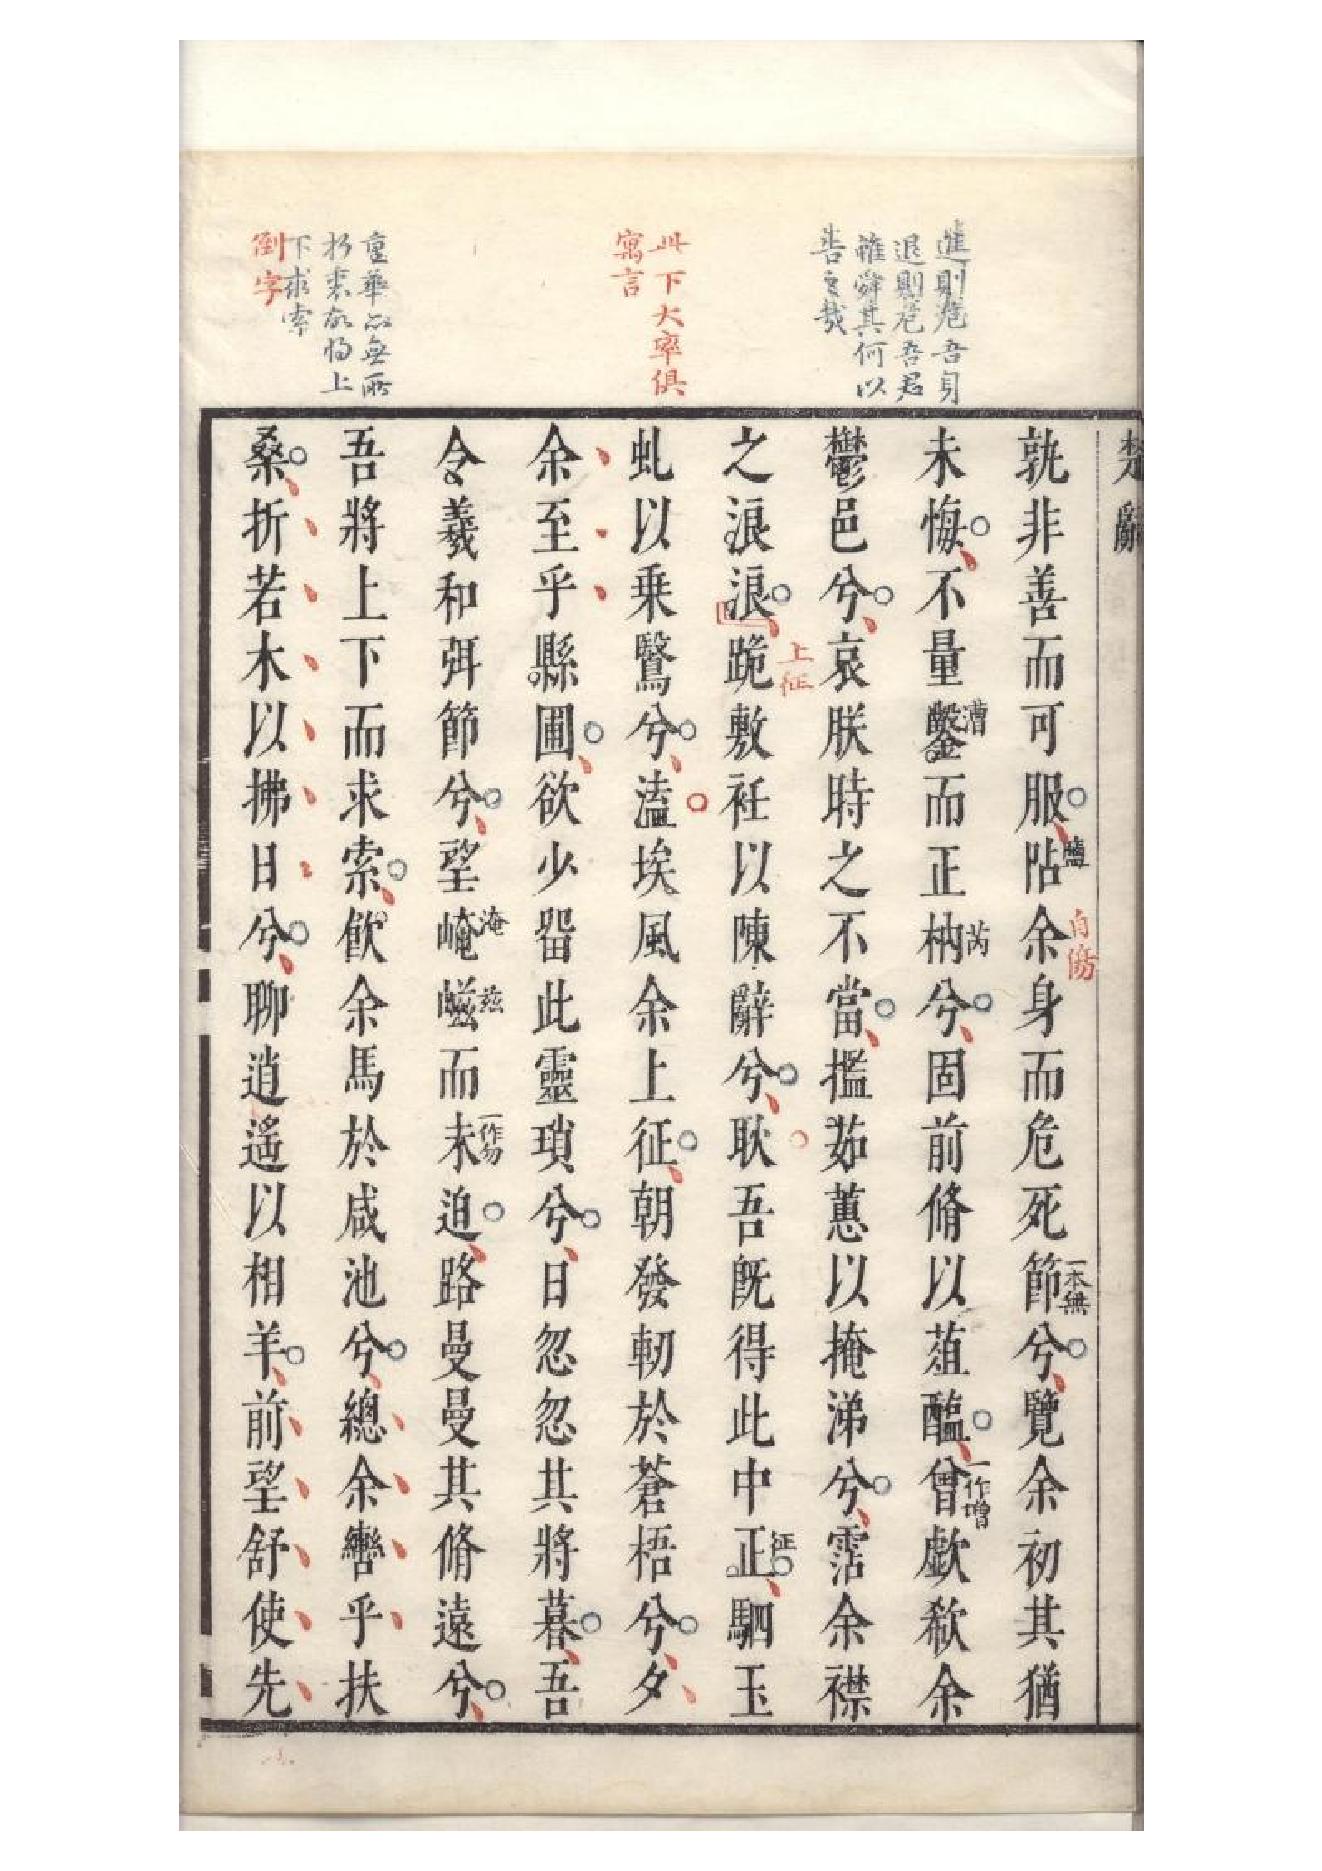 楚辭
進則危吾身
退則危吾君
雖舜其何以
告之哉
孰非善而可服阽余身而危死節兮覽余初其猶
鹽
自傷
一本無
未悔不量鑿而正枘兮固前脩以葅醢曾歔欷余
漕
芮
一作增
鬱邑兮哀朕時之不當擥茹蕙以掩涕兮霑余襟
之浪浪跪敷衽以陳辭兮耿吾既得此中正駟玉
上征
征
此下大率俱
寓言
虬以乗鷖兮溘埃風余上征朝發軔於蒼梧兮夕
余至乎縣圃欲少畱此靈瑣兮日忽忽其將暮吾
令羲和弭節兮望崦嵫而未迫路曼曼其脩遠兮
淹
玆
一作勿
重華以無所
下求索
吾將上下而求索飲余馬於咸池兮總余轡乎扶
倒字
桑折若木以拂日兮聊逍遙以相羊前望舒使先